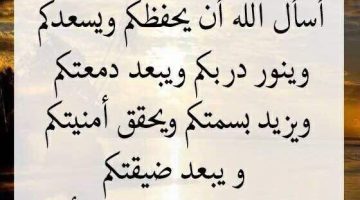 أسأل الله أن يحفظكم ويسعدكم
وينور دربكم ويبعد دمعتكم
ويزيد بسمتكم ويحقق أمنيتكم
و يبعد ضيقتكم